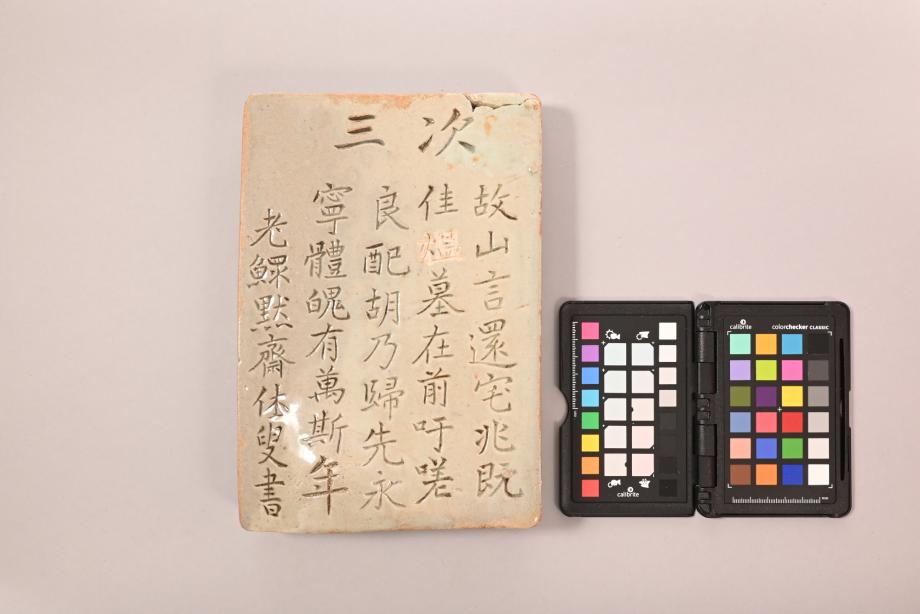 次三
故山言還宅兆既
佳媼墓在前吁嗟
良配胡乃歸先永
寧體魄有萬斯年
老鰥默齋休叟書
calibrite
calibrite
calibrite
colorchecker CLASSIC